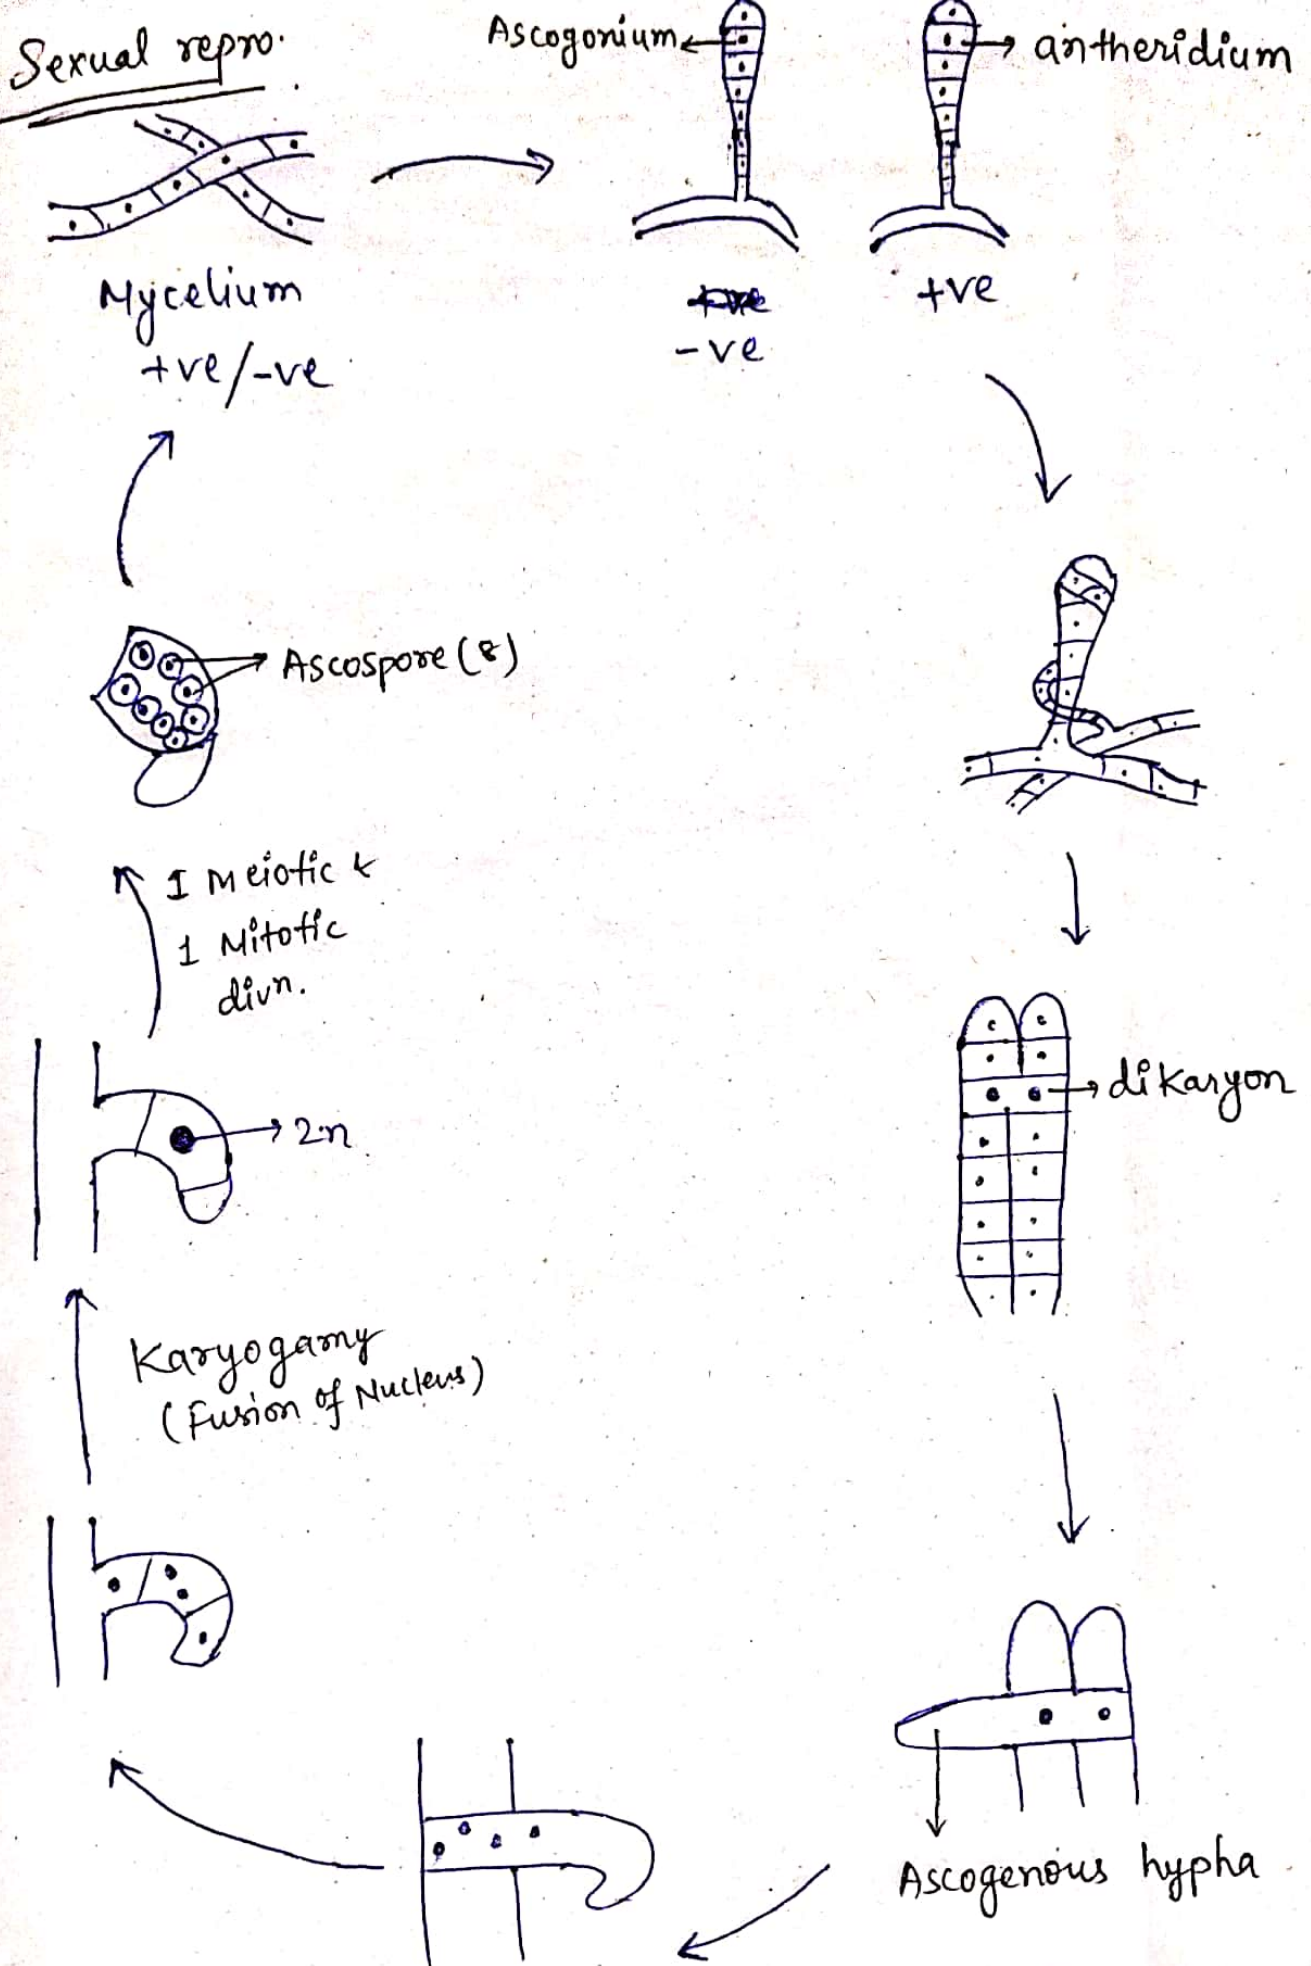 Sexual repro.
Ascogonium
antheridium
Mycelium
+ve/-ve
-ve
+ve
Ascospore (8)
1 Meiotic &
1 Mitotic
divn.
dikaryon
2n
Karyogamy
(Fusion of Nucleus)
Ascogenous hypha